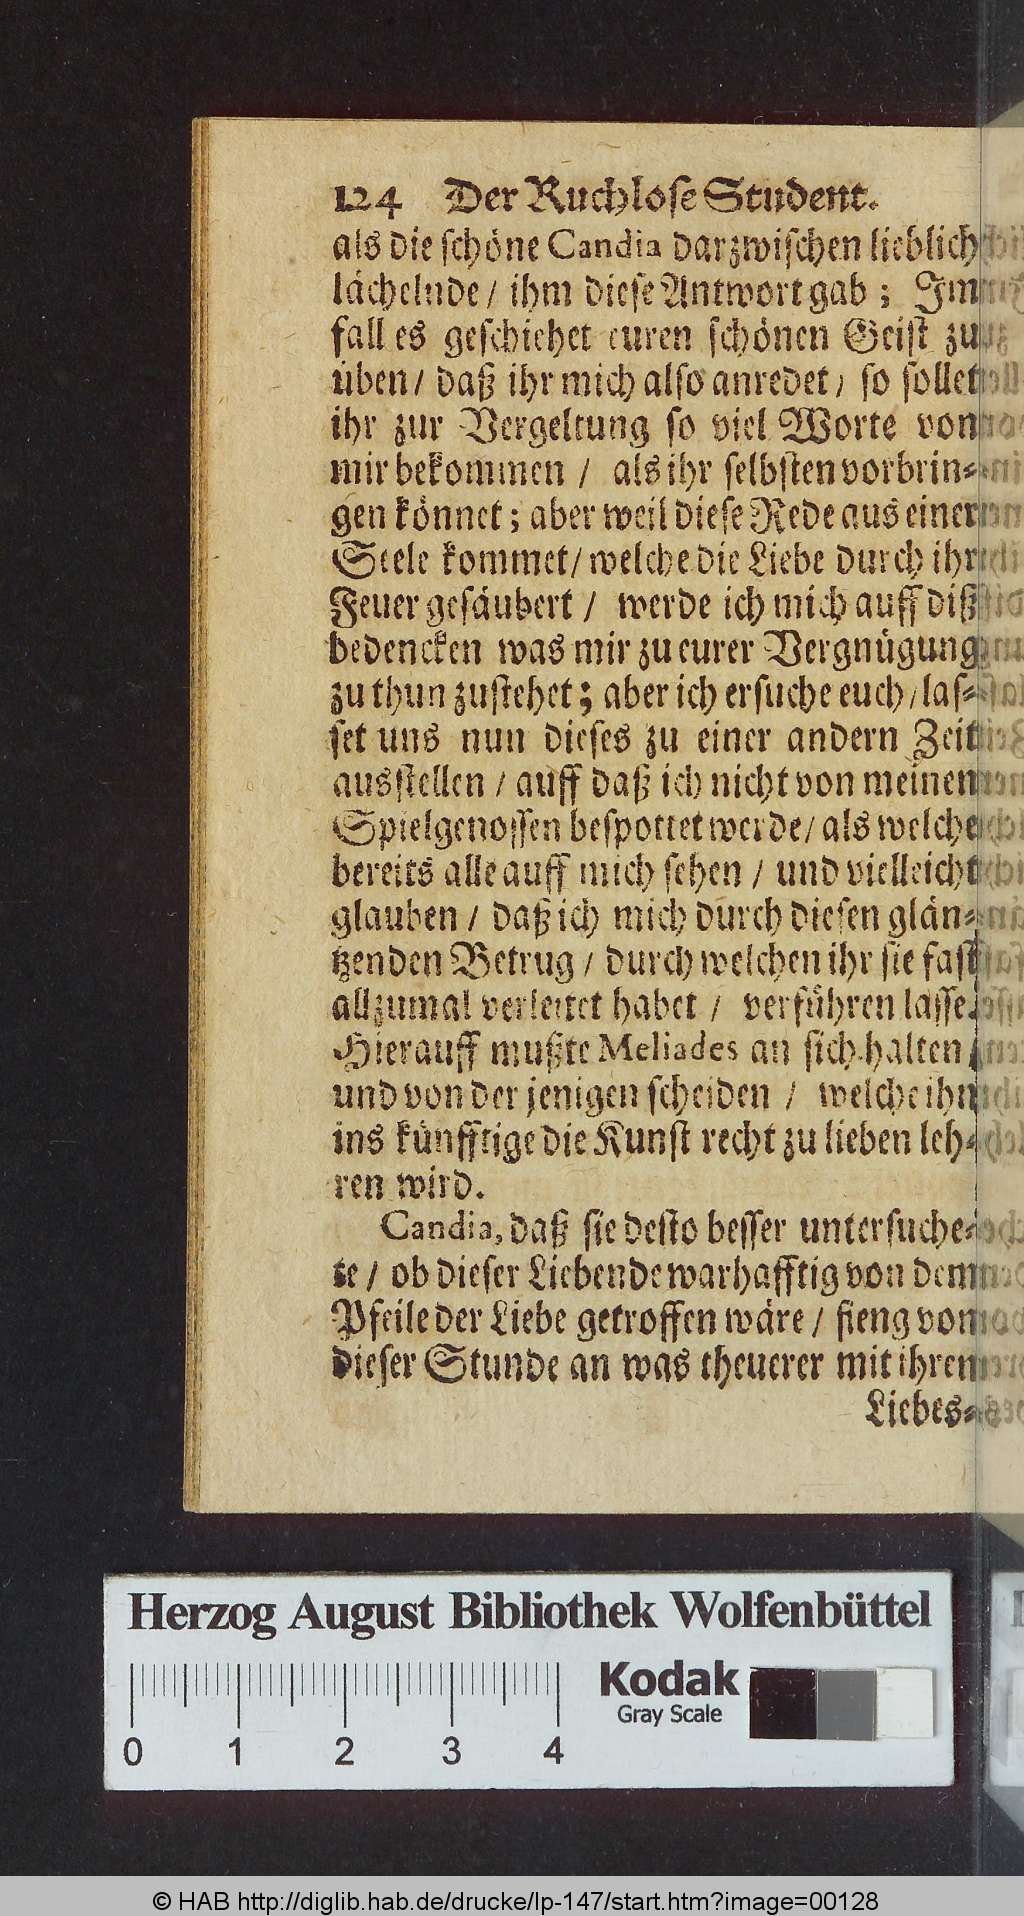 124 Der Ruchlose Student.
als die schöne Candia darzwischen lieblich
lächelnde / ihm diese Antwort gab ; Im
fall es geschiehet euren schönen Geist zu
üben / daß ihr mich also anredet / so sollet
ihr zur Vergeltung so viel Worte von
mir bekommen / als ihr selbsten vorbrin-
gen könnet ; aber weil diese Rede aus einer
Seele kommet / welche die Liebe durch ihr
Feuer gesäubert / werde ich mich auff diß
bedencken was mir zu eurer Vergnügung
zu thun zustehet ; aber ich ersuche euch / las-
set uns nun dieses zu einer andern Zeit
ausstellen / auff daß ich nicht von meinen
Spielgenossen bespottet werde / als welche
bereits alle auff mich sehen / und vielleicht
glauben / daß ich mich durch diesen glän-
tzenden Betrug / durch welchen ihr sie fast
allzumal verleitet habet / verführen lasse.
Hierauff mußte Meliades an sich halten /
und von der jenigen scheiden / welche ihn
ins künfftige die Kunst recht zu lieben leh-
ren wird.
Candia, daß sie desto besser untersuche-
te / ob dieser Liebende warhafftig von dem
Pfeile der Liebe getroffen wäre / fieng von
dieser Stunde an was theuerer mit ihren
Liebes-
Herzog August Bibliothek Wolfenbüttel
Kodak
Gray Scale
0 1 2 3 4
© HAB http://diglib.hab.de/drucke/lp-147/start.htm?image=00128